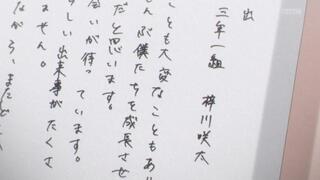 出
三年一組　梓川咲太
ことも大変なこともあり
んぶ僕たちを成長させ
だと思います。
会いが待っています。
しい出来事がたくさ
ません。